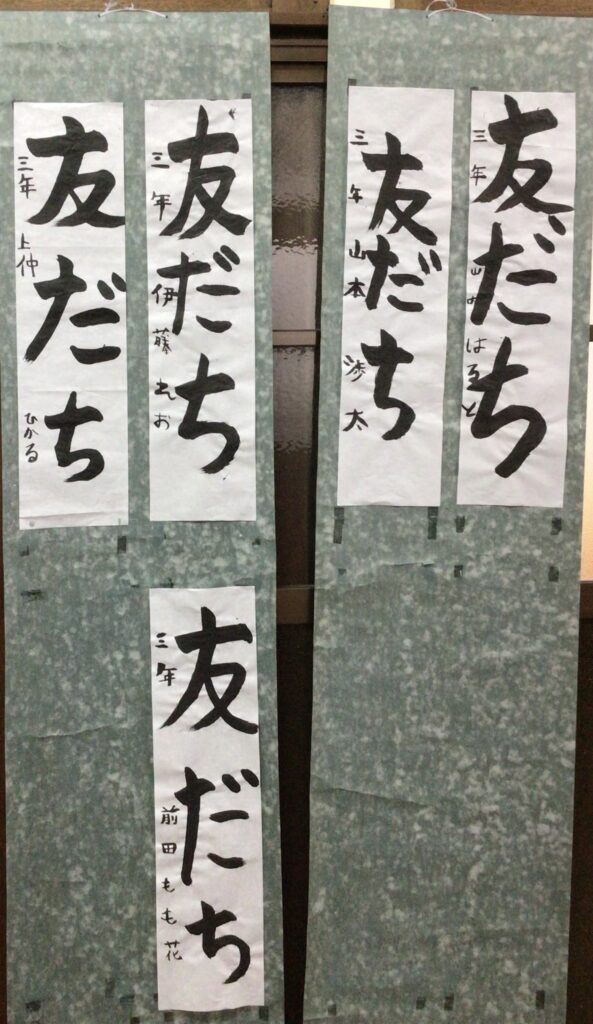 友だち
三年
友だち
三年 山本 渉太
友だち
三年 伊藤 れお
友だち
三年 上仲 ひかる
友だち
三年 前田もも花